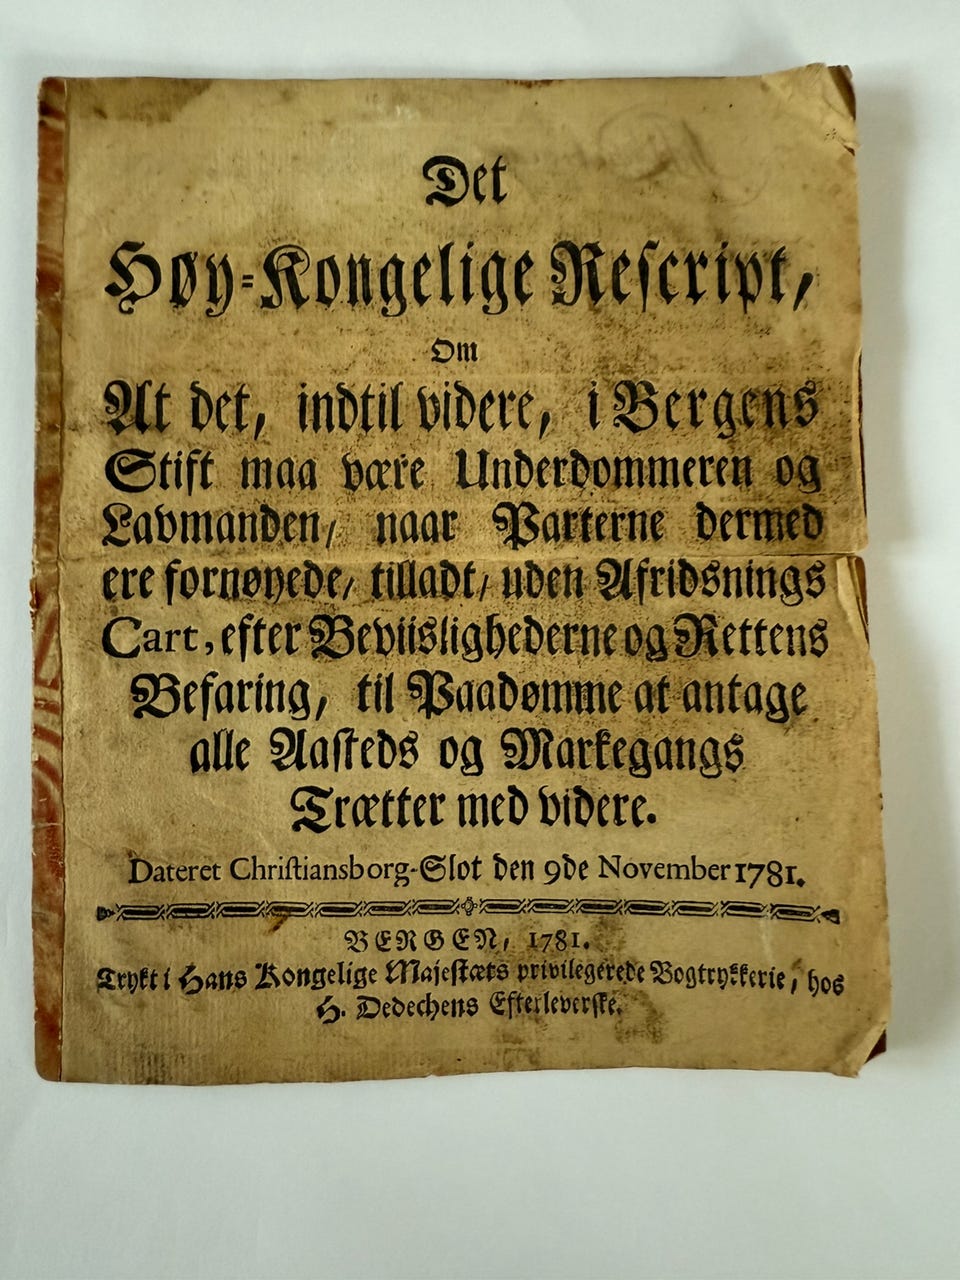 Det
Høy-Kongelige Rescript,
Om
At det, indtil videre, i Bergens
Stift maa være Underdommeren og
Lavmanden, naar Parterne dermed
ere fornøyede, tilladt, uden Afridsnings
Cart, efter Beviislighederne og Rettens
Befaring, til Paadømme at antage
alle Aasteds og Markegangs
Trætter med videre.
Dateret Christiansborg-Slot den 9de November 1781.
BERGEN, 1781.
Trykt i Hans Kongelige Majestæts privilegerede Bogtrykkerie, hos
H. Dedechens Efterleverske.